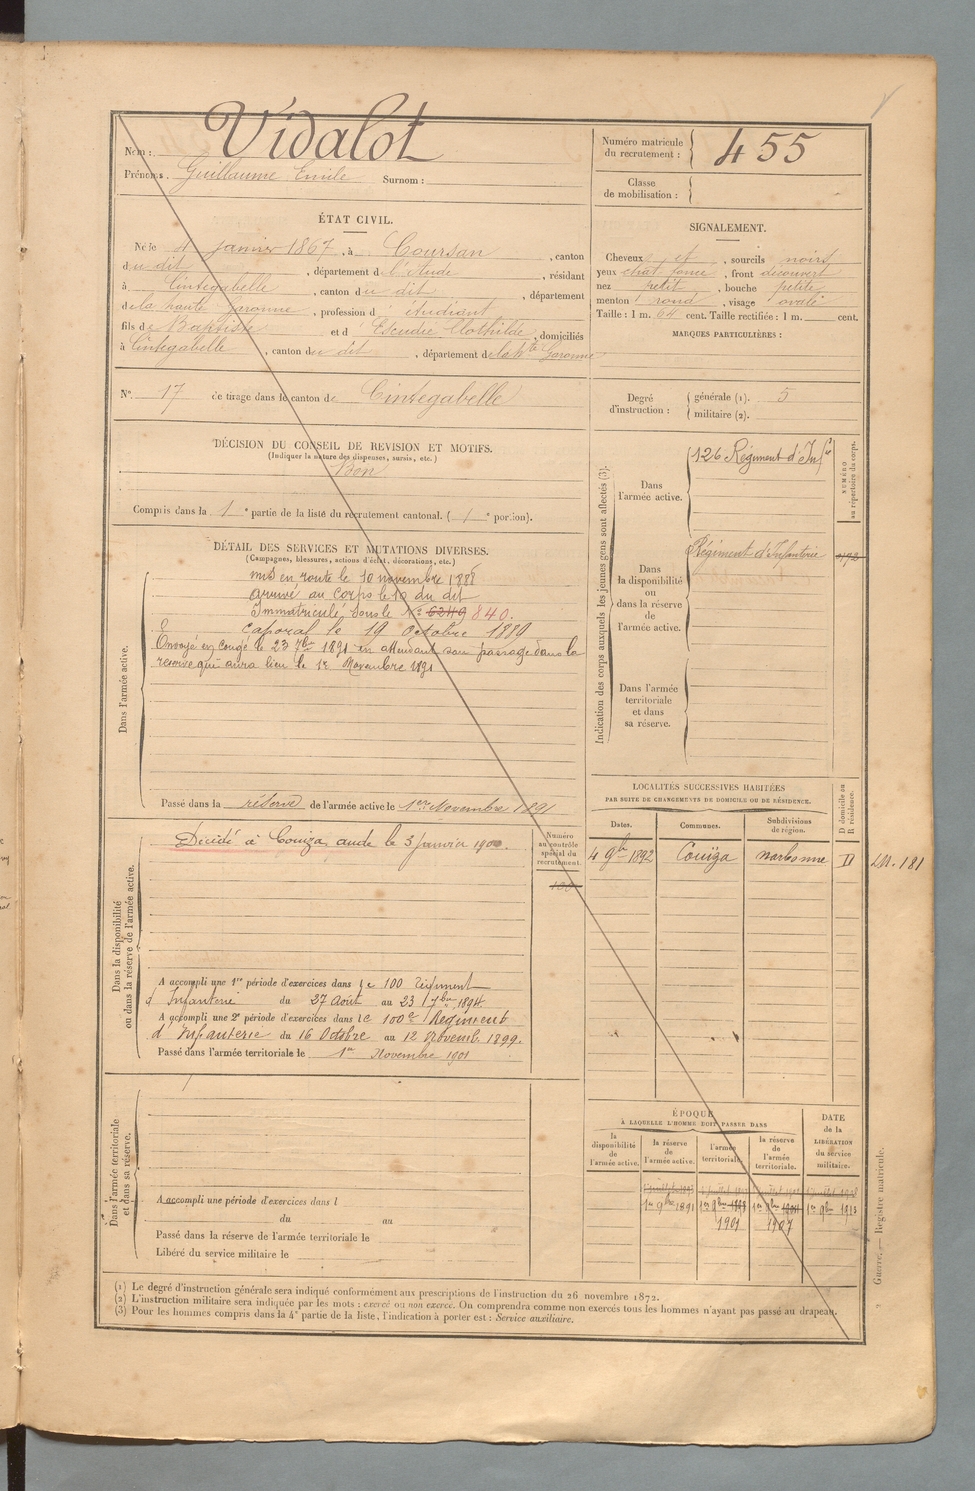 Nom : Vidalot
Prénoms. Guillaume Emile Surnom :
Numéro matricule du recrutement : 455
Classe de mobilisation :
ÉTAT CIVIL.
Né le 4 janvier 1867, à Coursan, canton
du dit, département de l'Aude, résidant
à Cintegabelle, canton du dit, département
de la haute Garonne, profession d étudiant
fils de Baptiste et d Escudié Clothilde, domiciliés
à Cintegabelle, canton du dit, département de la hte Garonne
N°. 17 de tirage dans le canton de Cintegabelle
DÉCISION DU CONSEIL DE REVISION ET MOTIFS.
(Indiquer la nature des dispenses, sursis, etc.)
Bon
Compris dans la 1e partie de la liste du recrutement cantonal. ( 1e portion).
DÉTAIL DES SERVICES ET MUTATIONS DIVERSES.
(Campagnes, blessures, actions d'éclat, décorations, etc.)
Dans l'armée active.
mis en route le 10 novembre 1888
arrivé au corps le 10 du dit
Immatriculé sous le N° 6249 840.
Caporal le 19 octobre 1889
Envoyé en congé le 23 7bre 1891 en attendant son passage dans la
réserve qui aura lieu le 1er Novembre 1891
Passé dans la réserve de l'armée active le 1er Novembre 1891
Dans la disponibilité
ou dans la réserve de l'armée active.
Décédé à Couiza, aude le 3 janvier 1900.
Numéro
au contrôle
spécial du
recrutement.
A accompli une 1re période d'exercices dans le 100 régiment
d'Infanterie du 27 Août au 23 7bre 1894.
A accompli une 2e période d'exercices dans le 100e Régiment
d'Infanterie du 16 Octobre au 12 Novemb. 1899.
Passé dans l'armée territoriale le 1er Novembre 1901
Dans l'armée territoriale
et dans sa réserve.
A accompli une période d'exercices dans l
du au
Passé dans la réserve de l'armée territoriale le
Libéré du service militaire le
SIGNALEMENT.
Cheveux et, sourcils noirs
yeux chat. foncé, front découvert
nez petit, bouche petite
menton rond, visage ovale
Taille : 1 m. 64 cent. Taille rectifiée : 1 m. cent.
MARQUES PARTICULIÈRES :
Degré d'instruction : générale (1). 5
militaire (2).
Indication des corps auxquels les jeunes gens sont affectés (3).
NUMÉRO
au répertoire du corps.
Dans
l'armée active.
126 Régiment d'Infie
Dans
la disponibilité
ou
dans la réserve
de
l'armée active.
Régiment d'Infanterie
Dans l'armée
territoriale
et dans
sa réserve.
LOCALITÉS SUCCESSIVES HABITÉES
PAR SUITE DE CHANGEMENTS DE DOMICILE OU DE RÉSIDENCE.
D domicile ou
R résidence.
Dates. Communes. Subdivisions de région.
4 9bre 1892 Couïza narbonne D
ÉPOQUE
À LAQUELLE L'HOMME DOIT PASSER DANS
la disponibilité de l'armée active.
la réserve de l'armée active.
l'armée territoriale.
la réserve de l'armée territoriale.
DATE de la LIBÉRATION du service militaire.
1er 9bre 1891 1er 9bre 1er 9bre 1er 9bre 1913
1901 1907
Guerre. — Registre matricule.
(1) Le degré d'instruction générale sera indiqué conformément aux prescriptions de l'instruction du 26 novembre 1872.
(2) L'instruction militaire sera indiquée par les mots : exercé ou non exercé. On comprendra comme non exercés tous les hommes n'ayant pas passé au drapeau.
(3) Pour les hommes compris dans la 4e partie de la liste, l'indication à porter est : Service auxiliaire.